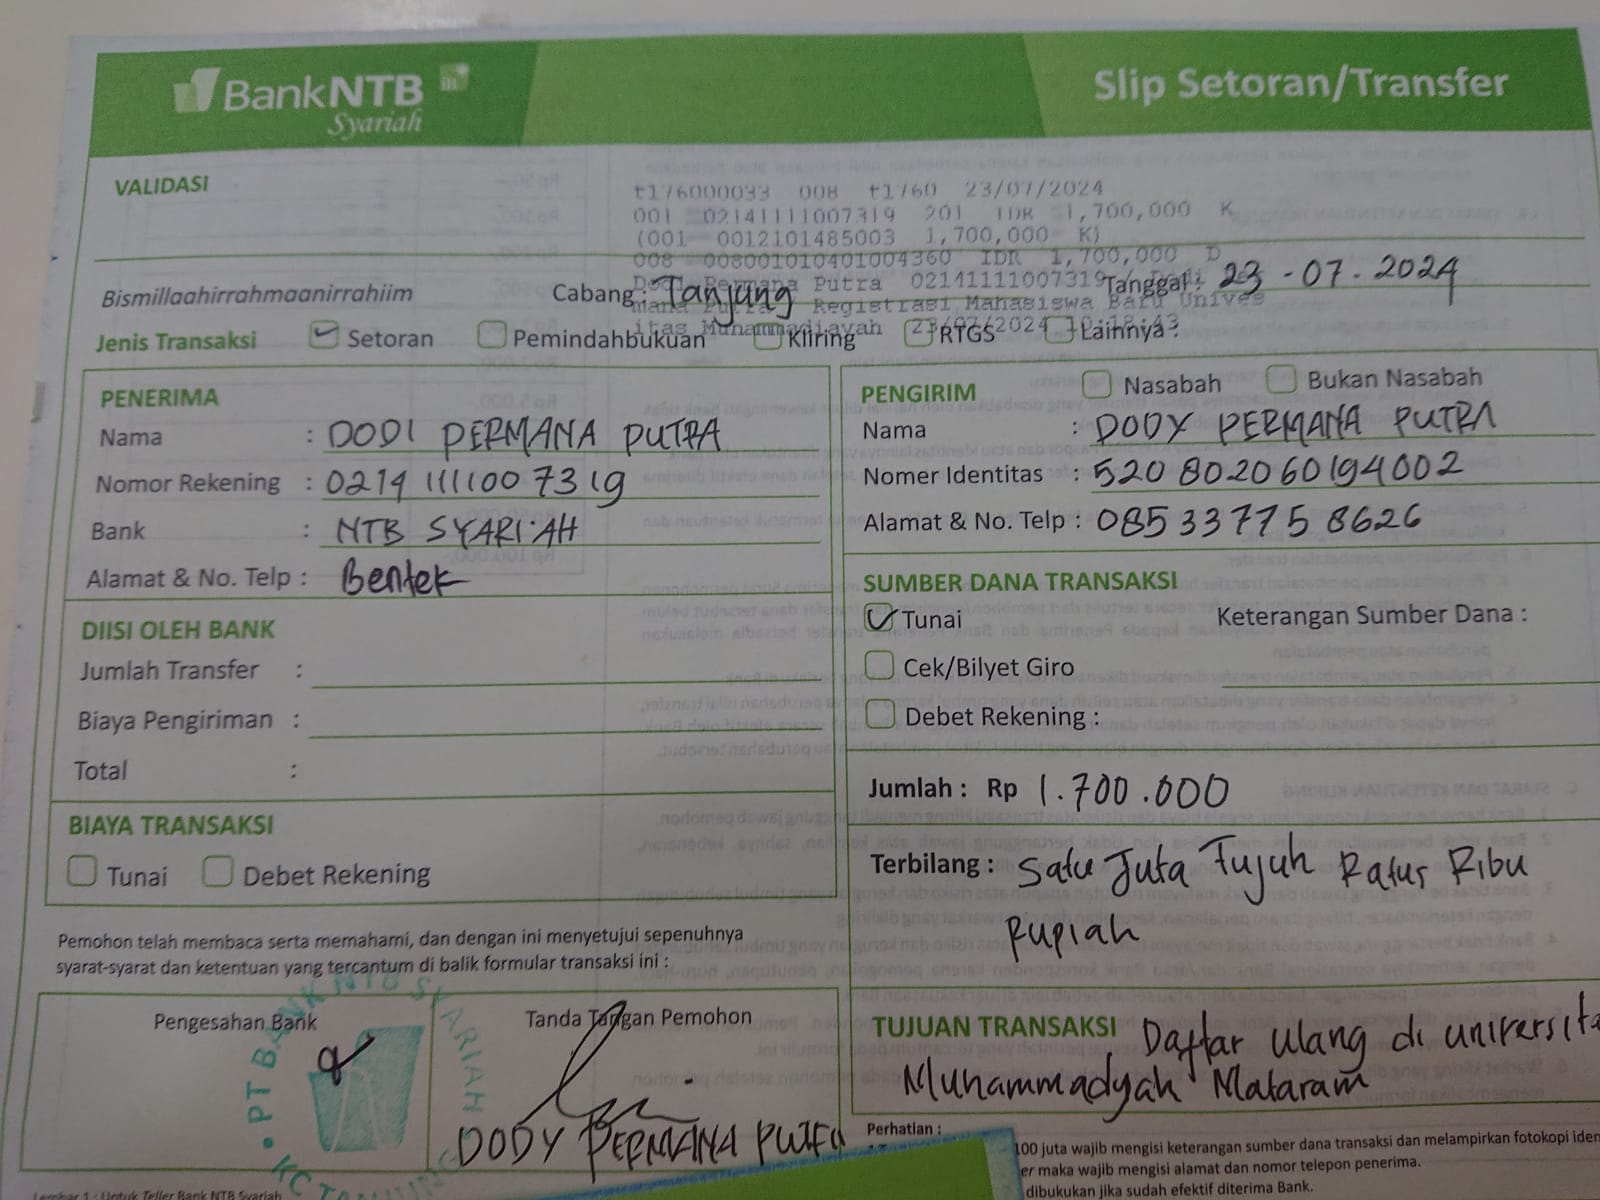 BankNTB
Syariah
Slip Setoran/Transfer
VALIDASI
t176000033 008 t1760 23/07/2024
001 02141111007319 201 IDR 1,700,000 K
(001 0012101485003 1,700,000 K)
008 008001010401004360 IDR 1,700,000 D
Putra 02141111007319
Registrasi Mahasiswa Baru Unives
itas Muhammadiayah 23/07/2024
Bismillaahirrahmaanirrahiim
Cabang : Tanjung
Tanggal : 23 - 07 . 2024
Jenis Transaksi Setoran Pemindahbukuan Kliring RTGS Lainnya :
PENERIMA
Nama : DODI PERMANA PUTRA
Nomor Rekening : 0214 111100 7319
Bank : NTB SYARIAH
Alamat & No. Telp : Bentek
DIISI OLEH BANK
Jumlah Transfer :
Biaya Pengiriman :
Total :
BIAYA TRANSAKSI
Tunai Debet Rekening
Pemohon telah membaca serta memahami, dan dengan ini menyetujui sepenuhnya
syarat-syarat dan ketentuan yang tercantum di balik formular transaksi ini :
Pengesahan Bank
PT BANK NTB SYARIAH
KC TANJUNG
Tanda Tangan Pemohon
DODY PERMANA
PENGIRIM Nasabah Bukan Nasabah
Nama : DODY PERMANA PUTRA
Nomer Identitas : 520 80206 0194002
Alamat & No. Telp : 085 33 775 8626
SUMBER DANA TRANSAKSI
Tunai Keterangan Sumber Dana :
Cek/Bilyet Giro
Debet Rekening :
Jumlah : Rp 1.700.000
Terbilang : Satu Juta Tujuh Ratus Ribu
Rupiah
TUJUAN TRANSAKSI Daftar Ulang di universita
Muhammadyah Mataram
Perhatian :
100 juta wajib mengisi keterangan sumber dana transaksi dan melampirkan fotokopi iden
er maka wajib mengisi alamat dan nomor telepon penerima.
dibukukan jika sudah efektif diterima Bank.
Lembar 1 : Untuk Teller Bank NTB Syariah